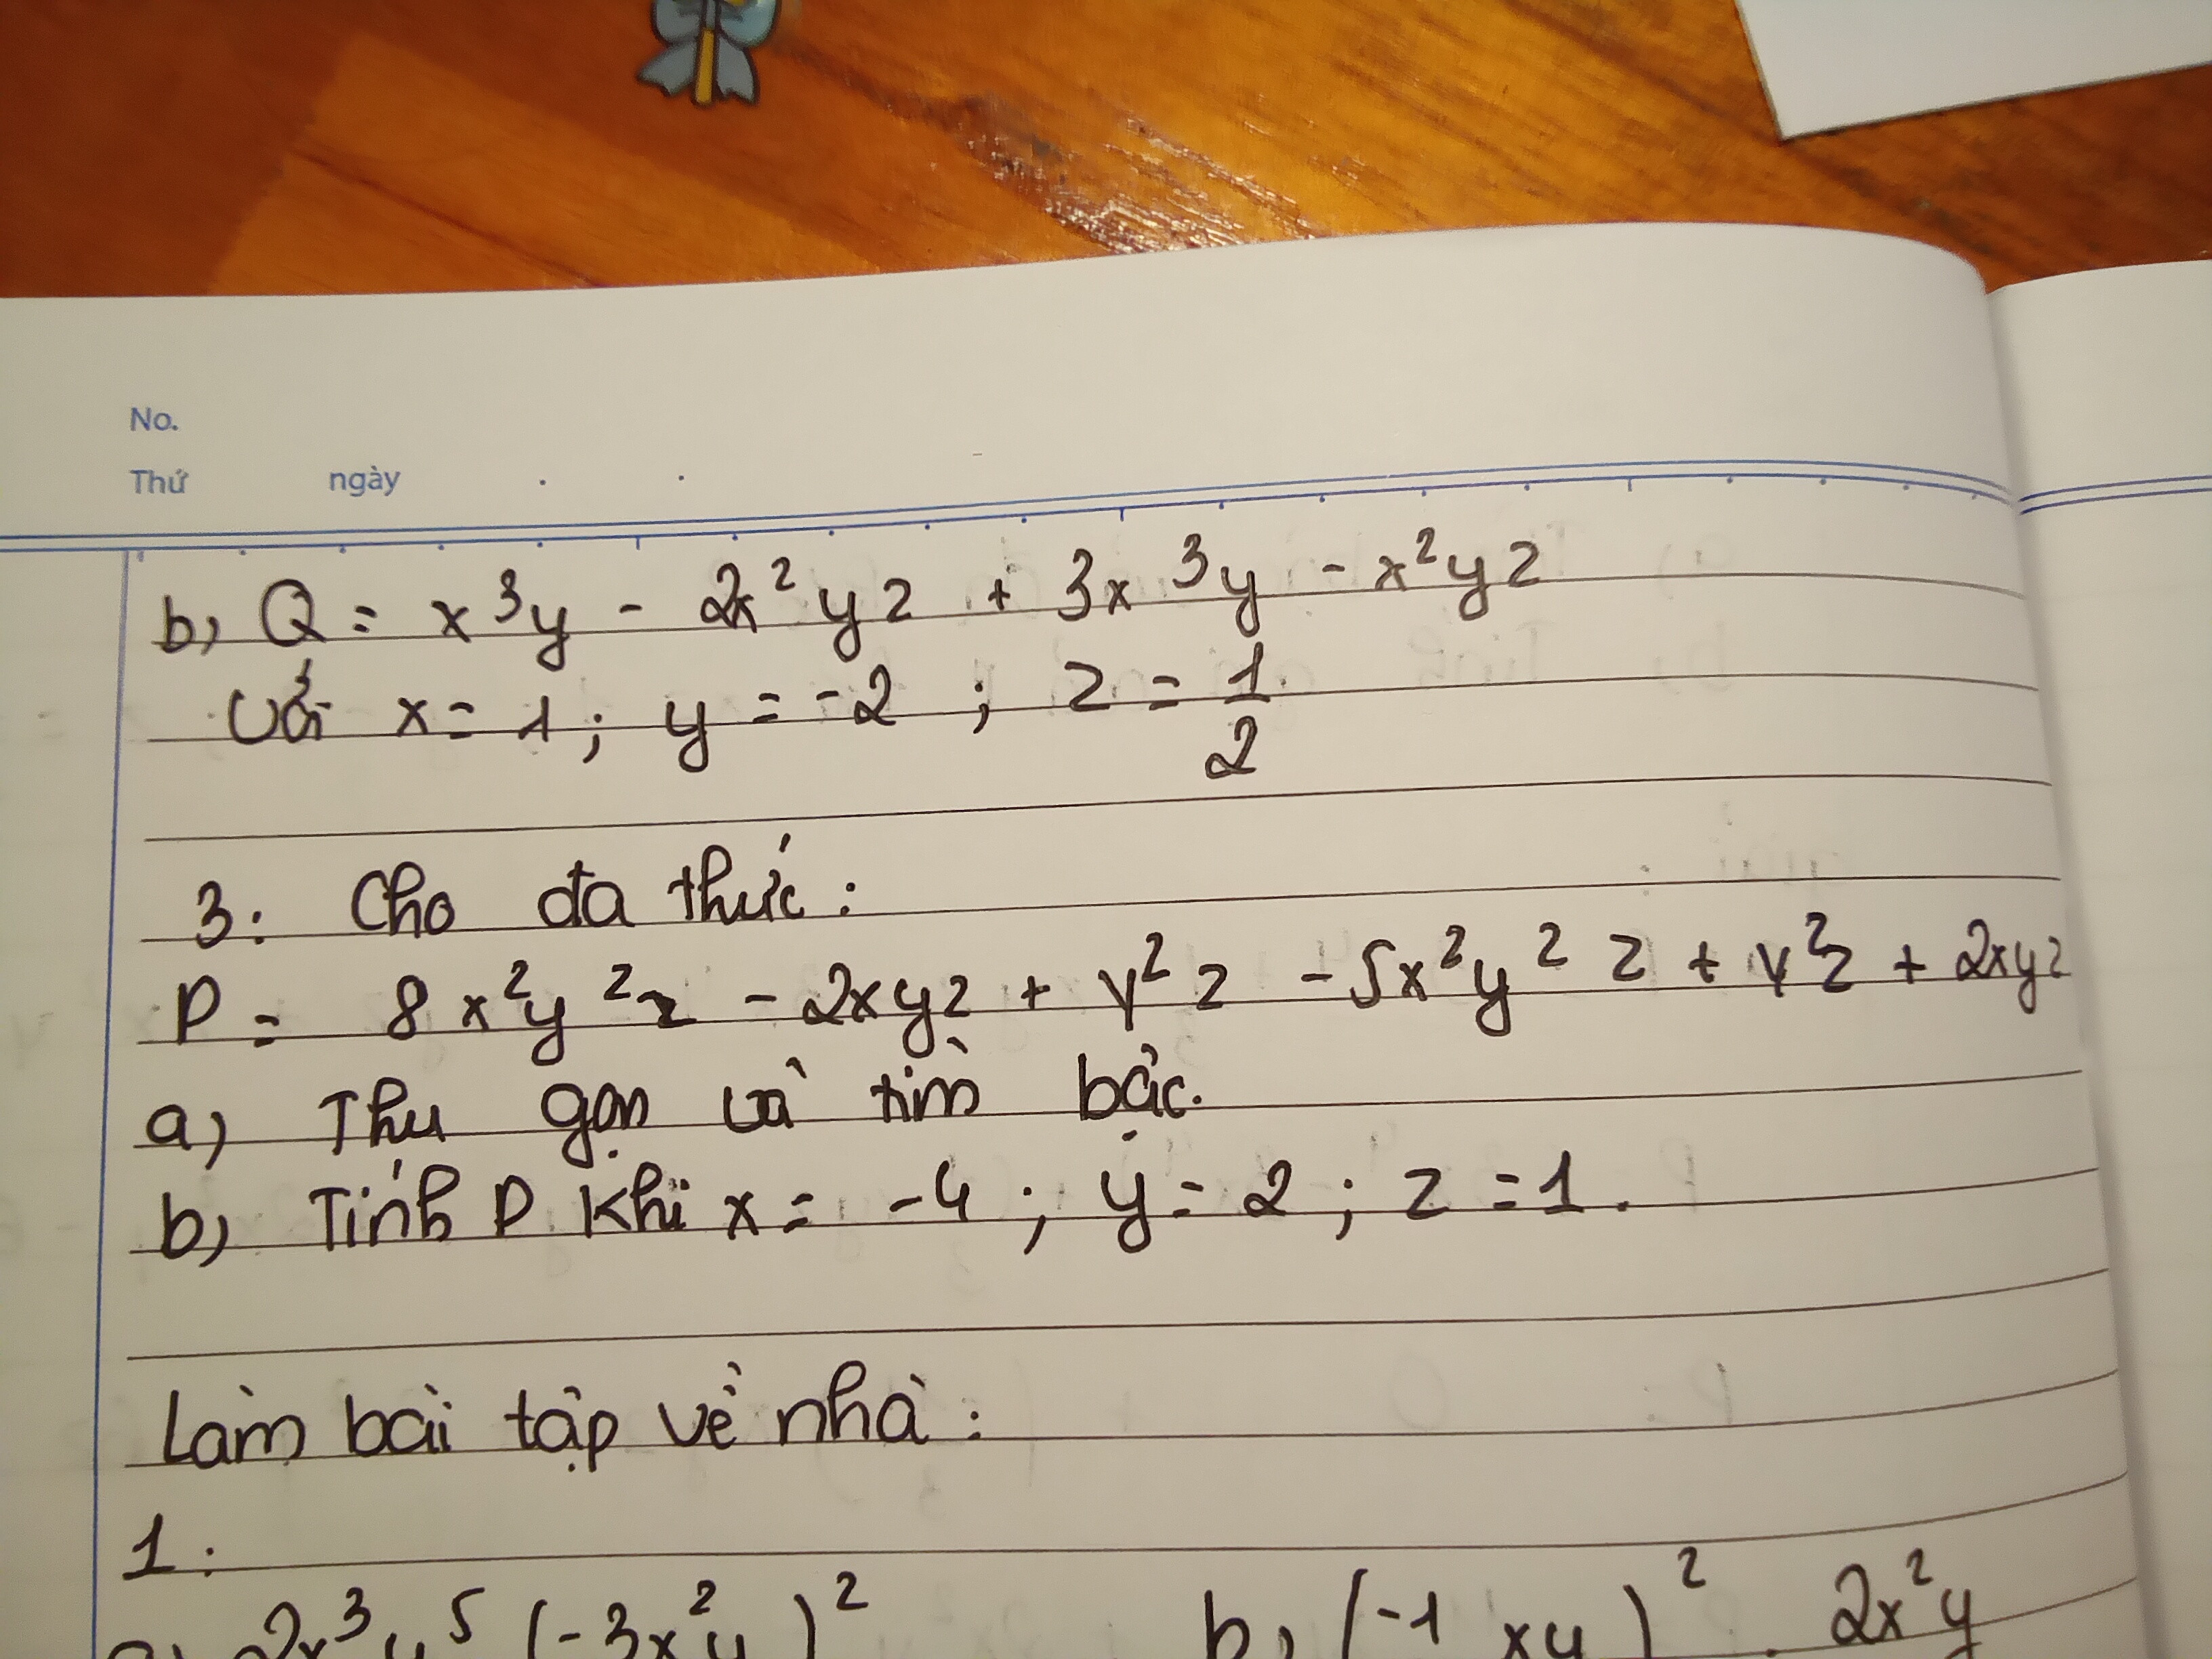 No.
Thứ ngày . .
b, Q = x³y - 2x²yz + 3x³y - x²yz
Với x = 1 ; y = -2 ; z = 1/2
3. Cho đa thức :
P = 8x²y²z - 2xyz + y²z - 5x²y²z + y²z + 2xyz
a) Thu gọn và tìm bậc.
b) Tính P khi x = -4 ; y = 2 ; z = 1.
Làm bài tập về nhà :
1.
a) 2x³y⁵ (-3x²y)² b, (-1 xy)² . 2x²y